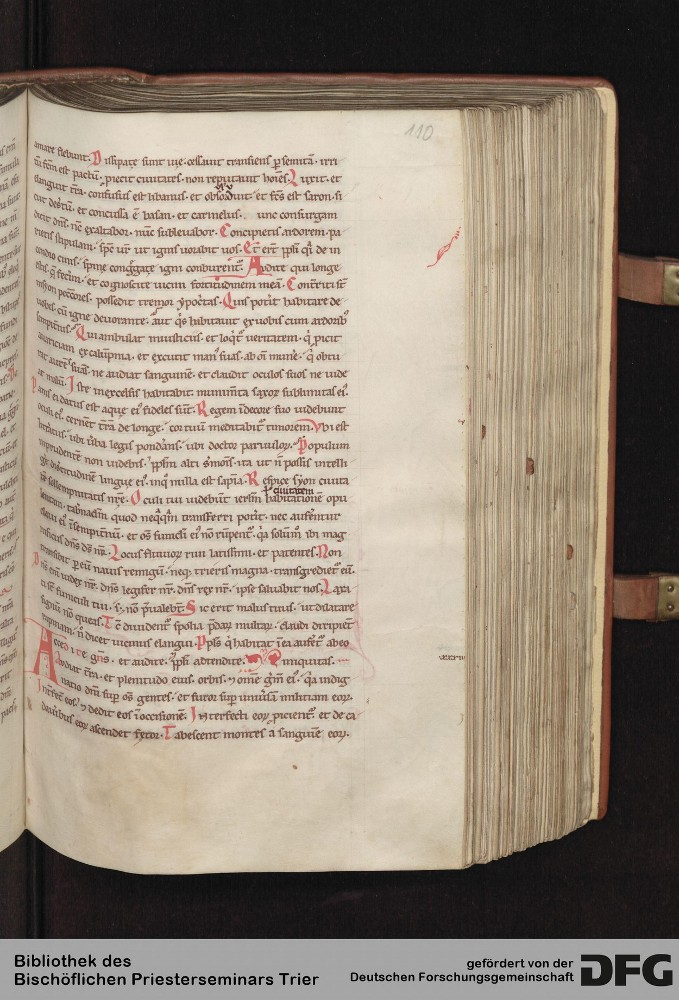 110
amare flebunt. Dissipate sunt uie. cessauit transiens p semitã. irri
tũ fcm est pactũ. proiecit ciuitates. non reputauit hoies. Luxit. et
elanguit tra. confusus est libanus. et obsorduit. et fcs est saron. si
cut desertũ. et concussa ẽ basan. et carmelus. unc consurgam
dicit dns. nc exaltabor. nunc subleuabor. Concipietis ardorem. pa
rietis stipulam. spc ur ut ignis uorabit uos. Et ert ppli qi de in
cendio cinis. spine congregate igni conburent. Audite qui longe
estis. q fecim. et cognoscite uicini fortitudinem meã. Contriti st
in syon peccores. possedit tremor ypocritas. Quis potit habitare de
uobis. cũ igne deuorante. aut qs habitauit ex uobis cum ardorib
sempitnis. Qui ambulat in iusticiis. et loqt ueritatem. q proicit
auariciam ex calũpnia. et excutit man suas. ab oi mune. q obtu
rat aures suas. ne audiat sanguinẽ. et claudit oculos suos ne uide
at malũ. Iste in excelsis habitabit. munimta saxor sublimitas ei.
Panis ei datus est. aque ei fideles sunt. Regem in decore suo uidebunt
oculi ei. cernent trã de longe. cor tuũ meditabit timorem. Vbi est
litteratus. ubi uba legis pondans. ubi doctor paruulor. Populum
inprudentẽ non uidebis. pplm alti smonis. ita ut n possis intelli
ge disertitudinẽ lingue ei. in q nulla est sapia. Respice syon ciuita
tẽ sollempnitatis nre. Oculi tui uidebunt ierlm ciuitatem habitationẽ opu
lentam. tabnaclm quod neqqm transferri potit. nec auferent
claui ei in sempitnũ. et os funicli ei no rumpent. qa solum ibi mag
nificus dns ds nr. Locus fluuior riui latissimi. et patentes. Non
transibit p eũ nauis remigũ. neq. trieris magna transgrediet eũ.
Dns eni iudex nr. dns legifer nr. dns rex nr. ipse saluabit nos. Laxa
ti st funiculi tui. s; no pualebt. Sic erit malus tuus. ut dilatare
signũ no queas. Tc diuident spolia pdar multar. claudi diripiet
rapinam. n dicet uicinus elangui. Ppls q habitat in ea auferet ab eo
iniquitas.
Accedite gens. et audite. ppli adtendite.
Audiat tra. et plenitudo eius. orbis. et ome gm ei. qa indig
natio dni sup os gentes. et furor sup uniusa militiam eor.
Intfecit eos. et dedit eos in occisionẽ. Interfecti eor proicient. et de ca
dauibus eor ascendet fetor. Tabescent montes a sanguie eor.
Bibliothek des
Bischöflichen Priesterseminars Trier
gefördert von der
Deutschen Forschungsgemeinschaft
DFG